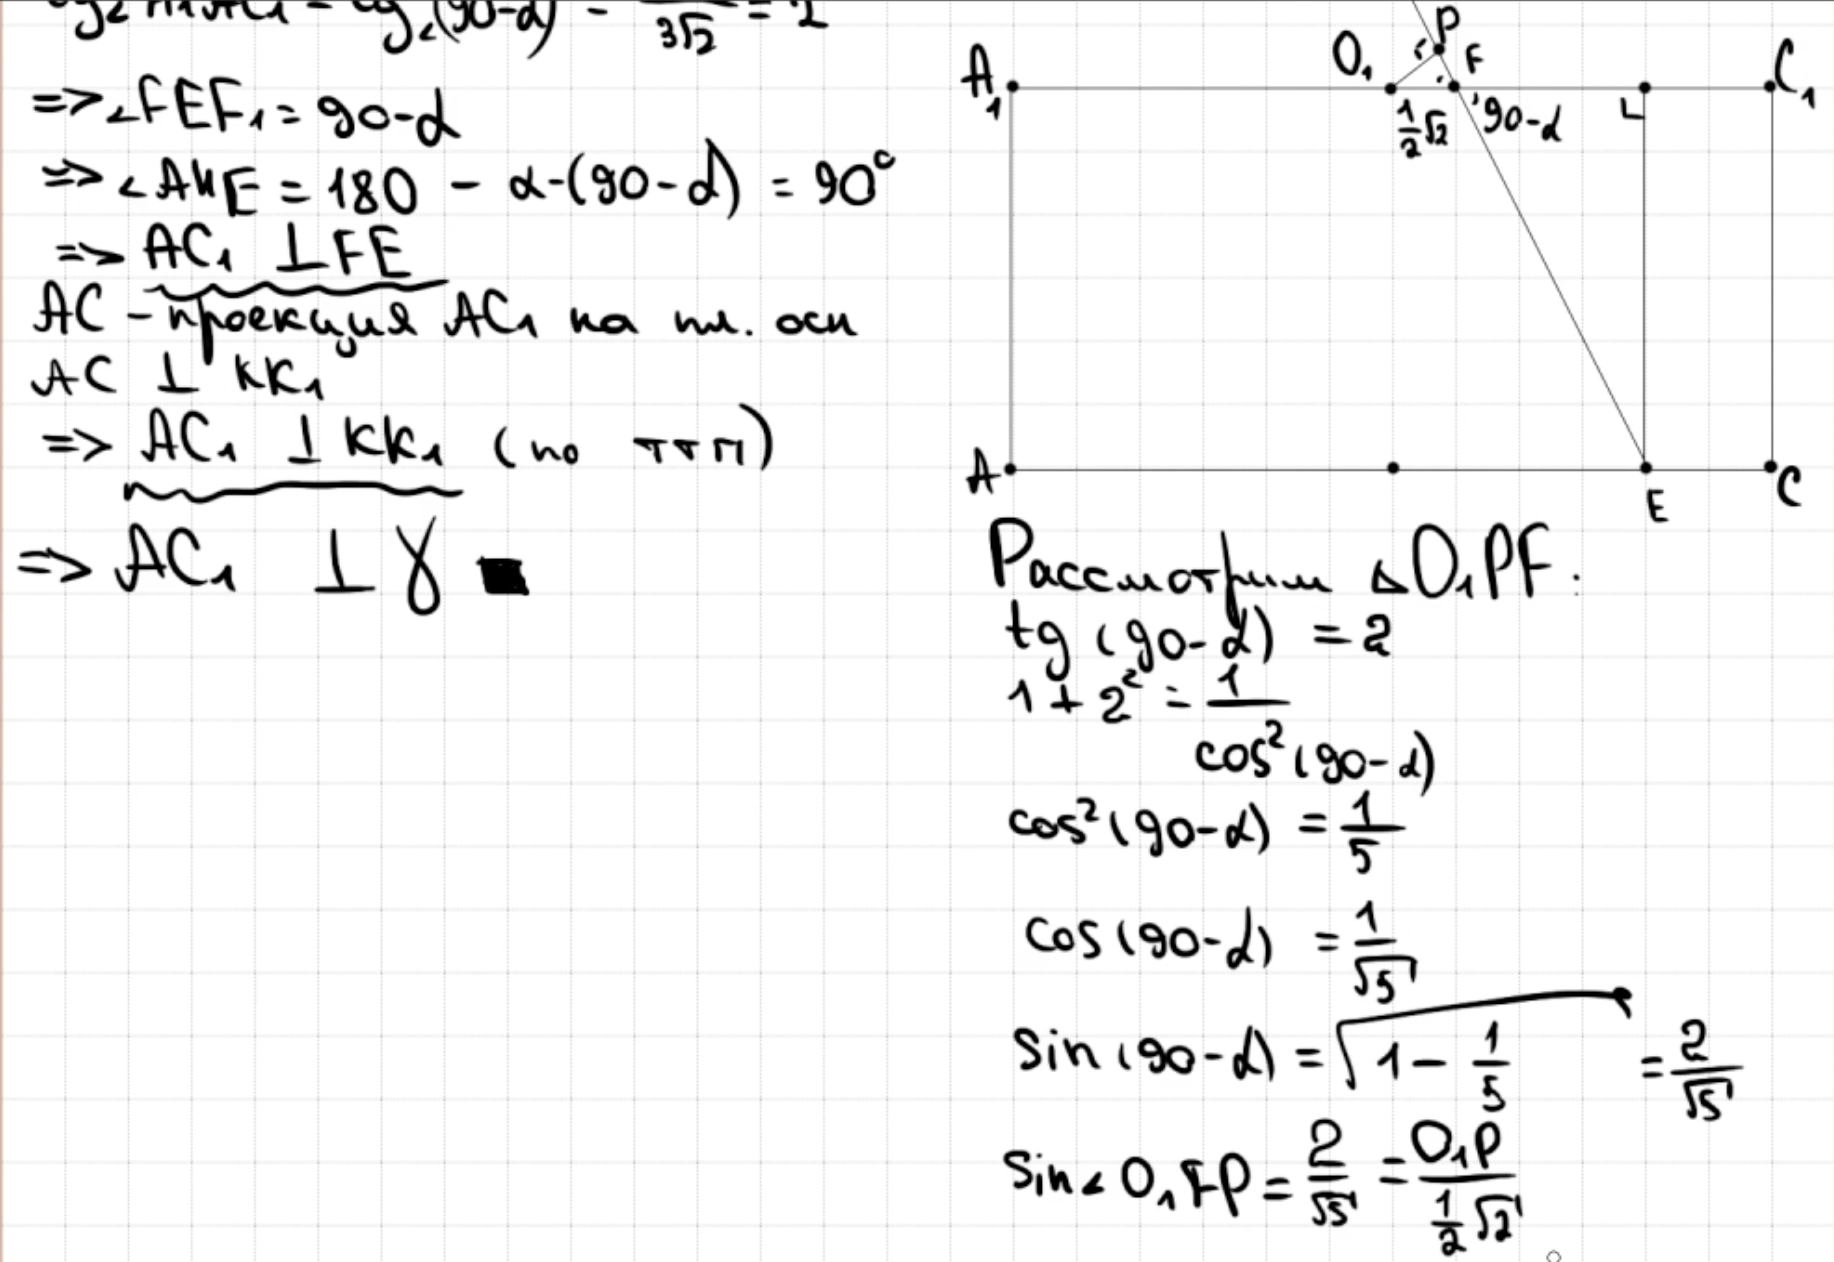 3√2 = 2
=> ∠FEF₁ = 90-α
=> ∠AHE = 180 - α-(90-α) = 90°
=> AC₁ ⊥ FE
AC - проекция AC₁ на пл. осн
AC ⊥ KK₁
=> AC₁ ⊥ KK₁ (по ттп)
=> AC₁ ⊥ γ
P
O₁ F
A₁ L C₁
½√2 90-α
A E C
Рассмотрим △O₁PF:
tg (90-α) = 2
1 + 2² = 1/cos²(90-α)
cos²(90-α) = 1/5
cos(90-α) = 1/√5
sin(90-α) = √(1 - 1/5) = 2/√5
sin∠O₁FP = 2/√5 = O₁P/(½√2)